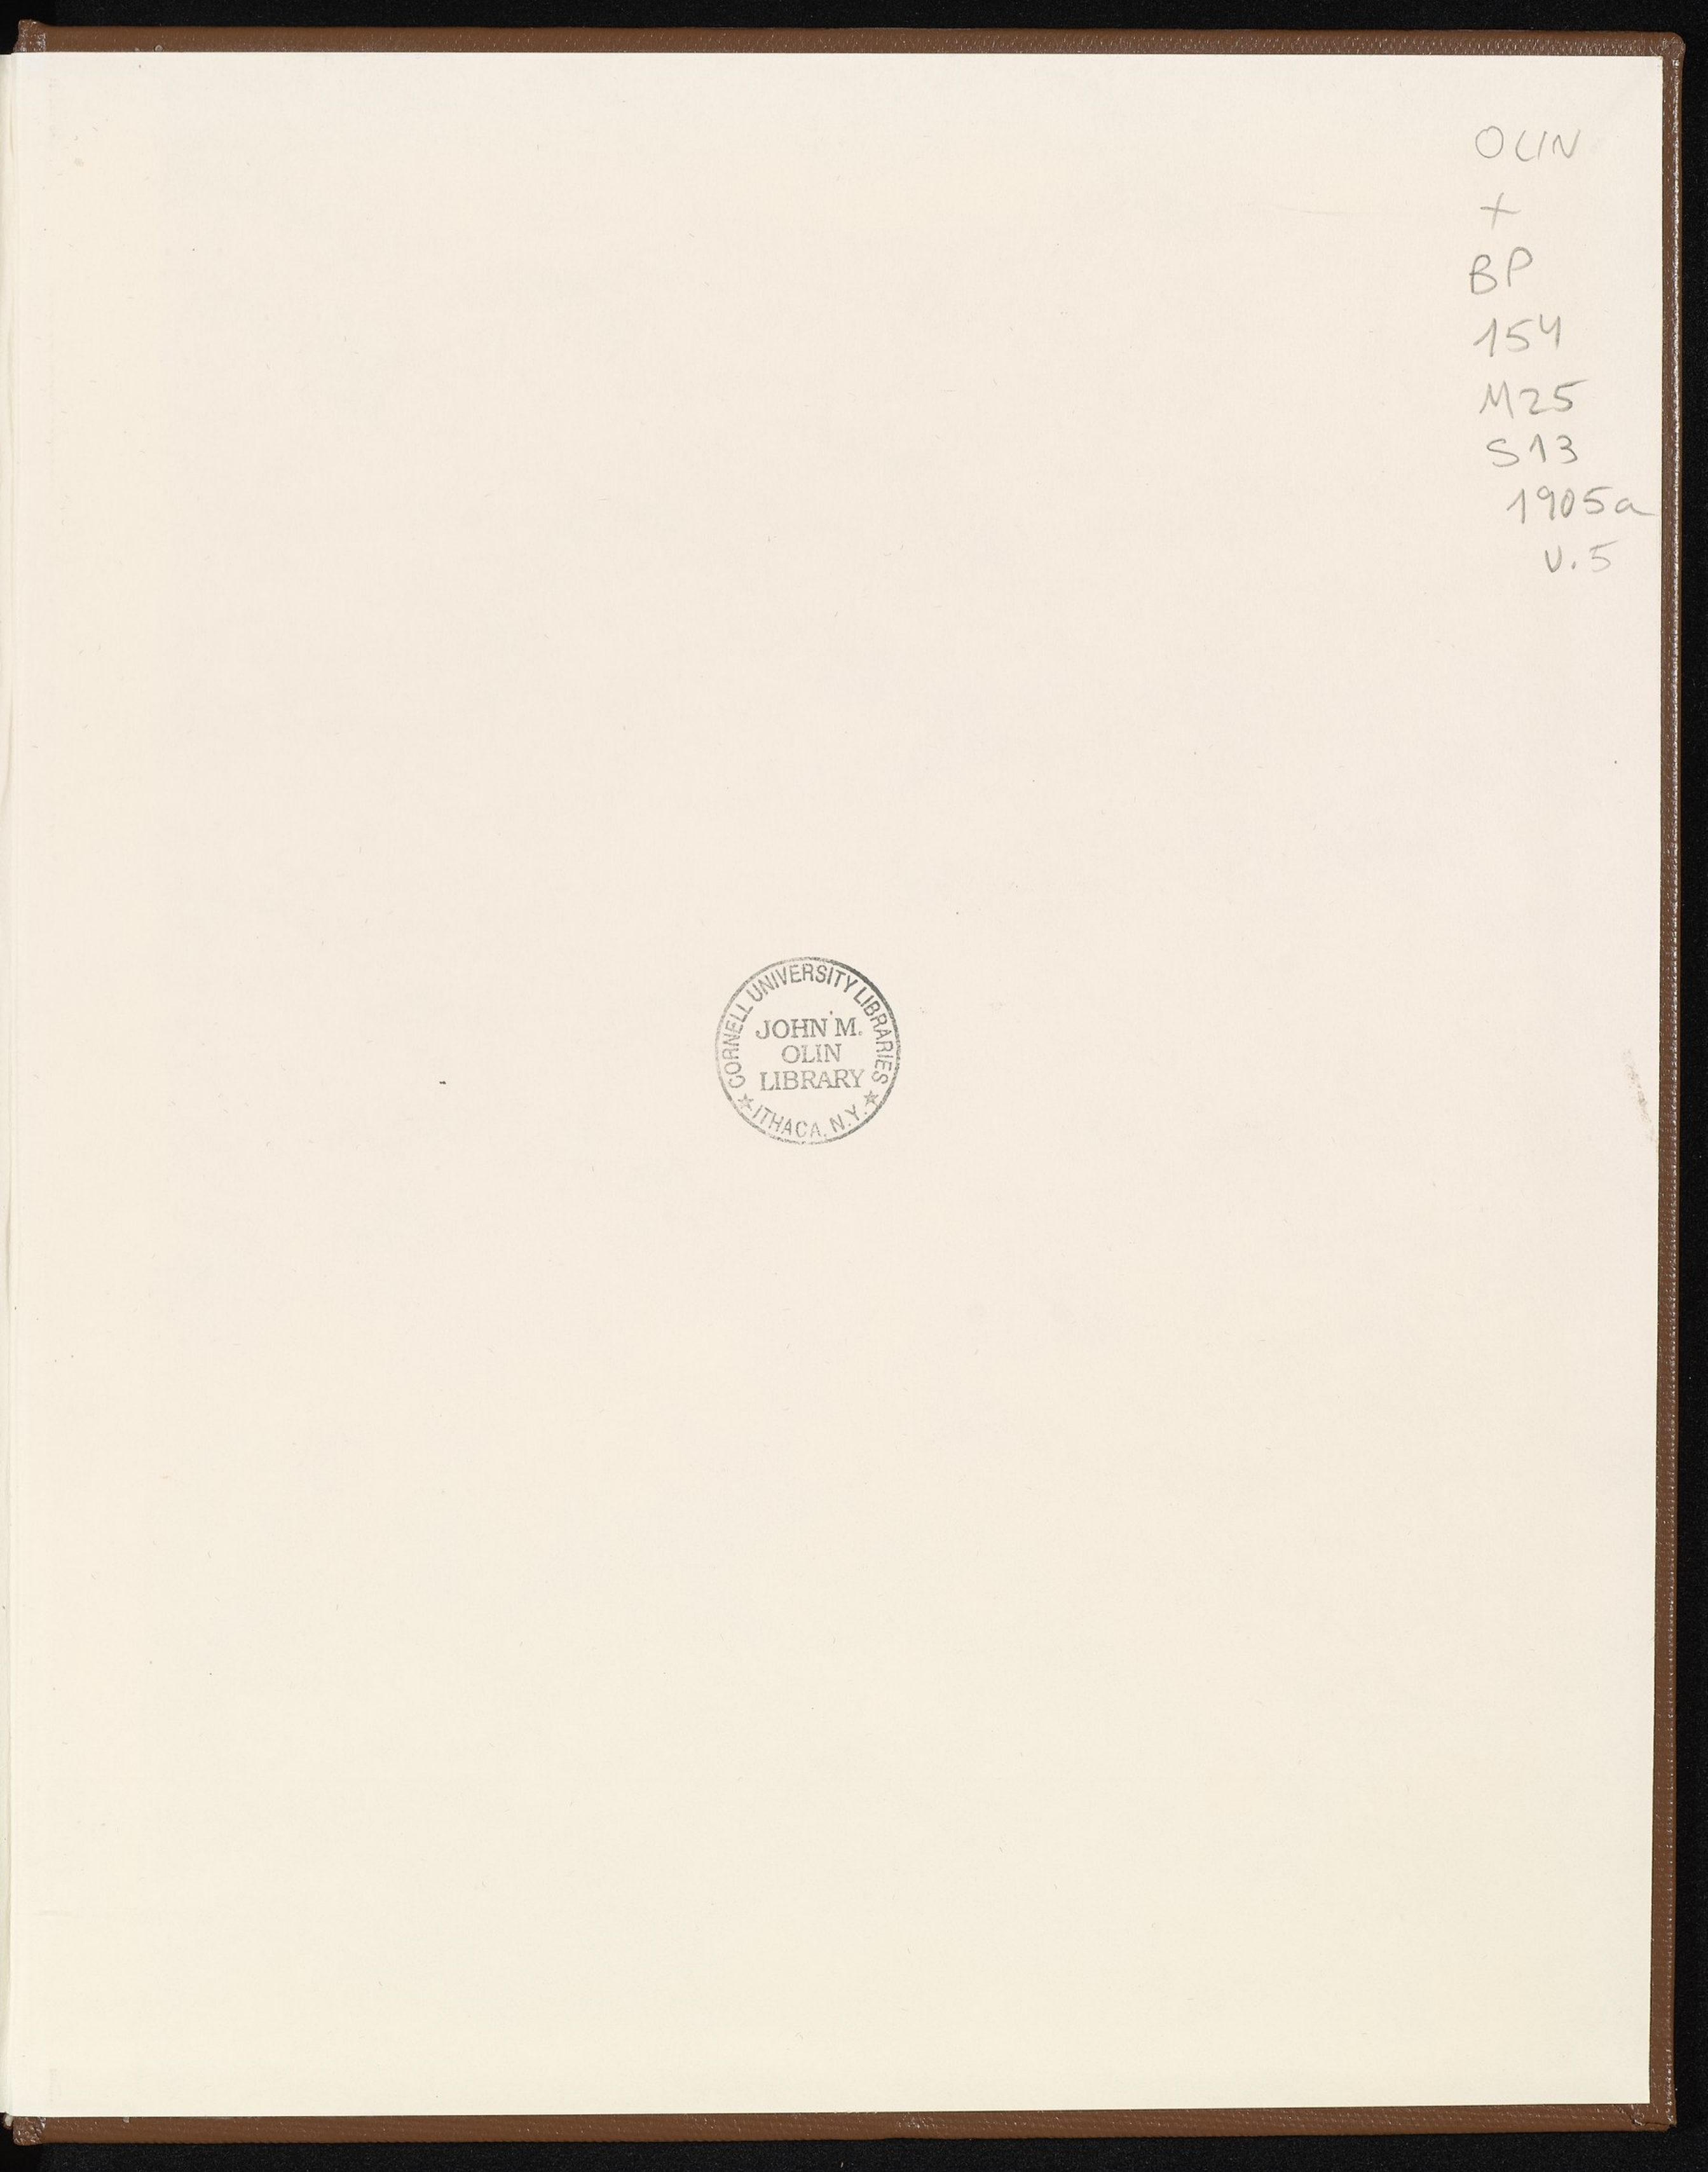 OLIN
+
BP
154
M25
S13
1905a
v.5
CORNELL UNIVERSITY LIBRARIES
JOHN M.
OLIN
LIBRARY
★ ITHACA, N.Y. ★